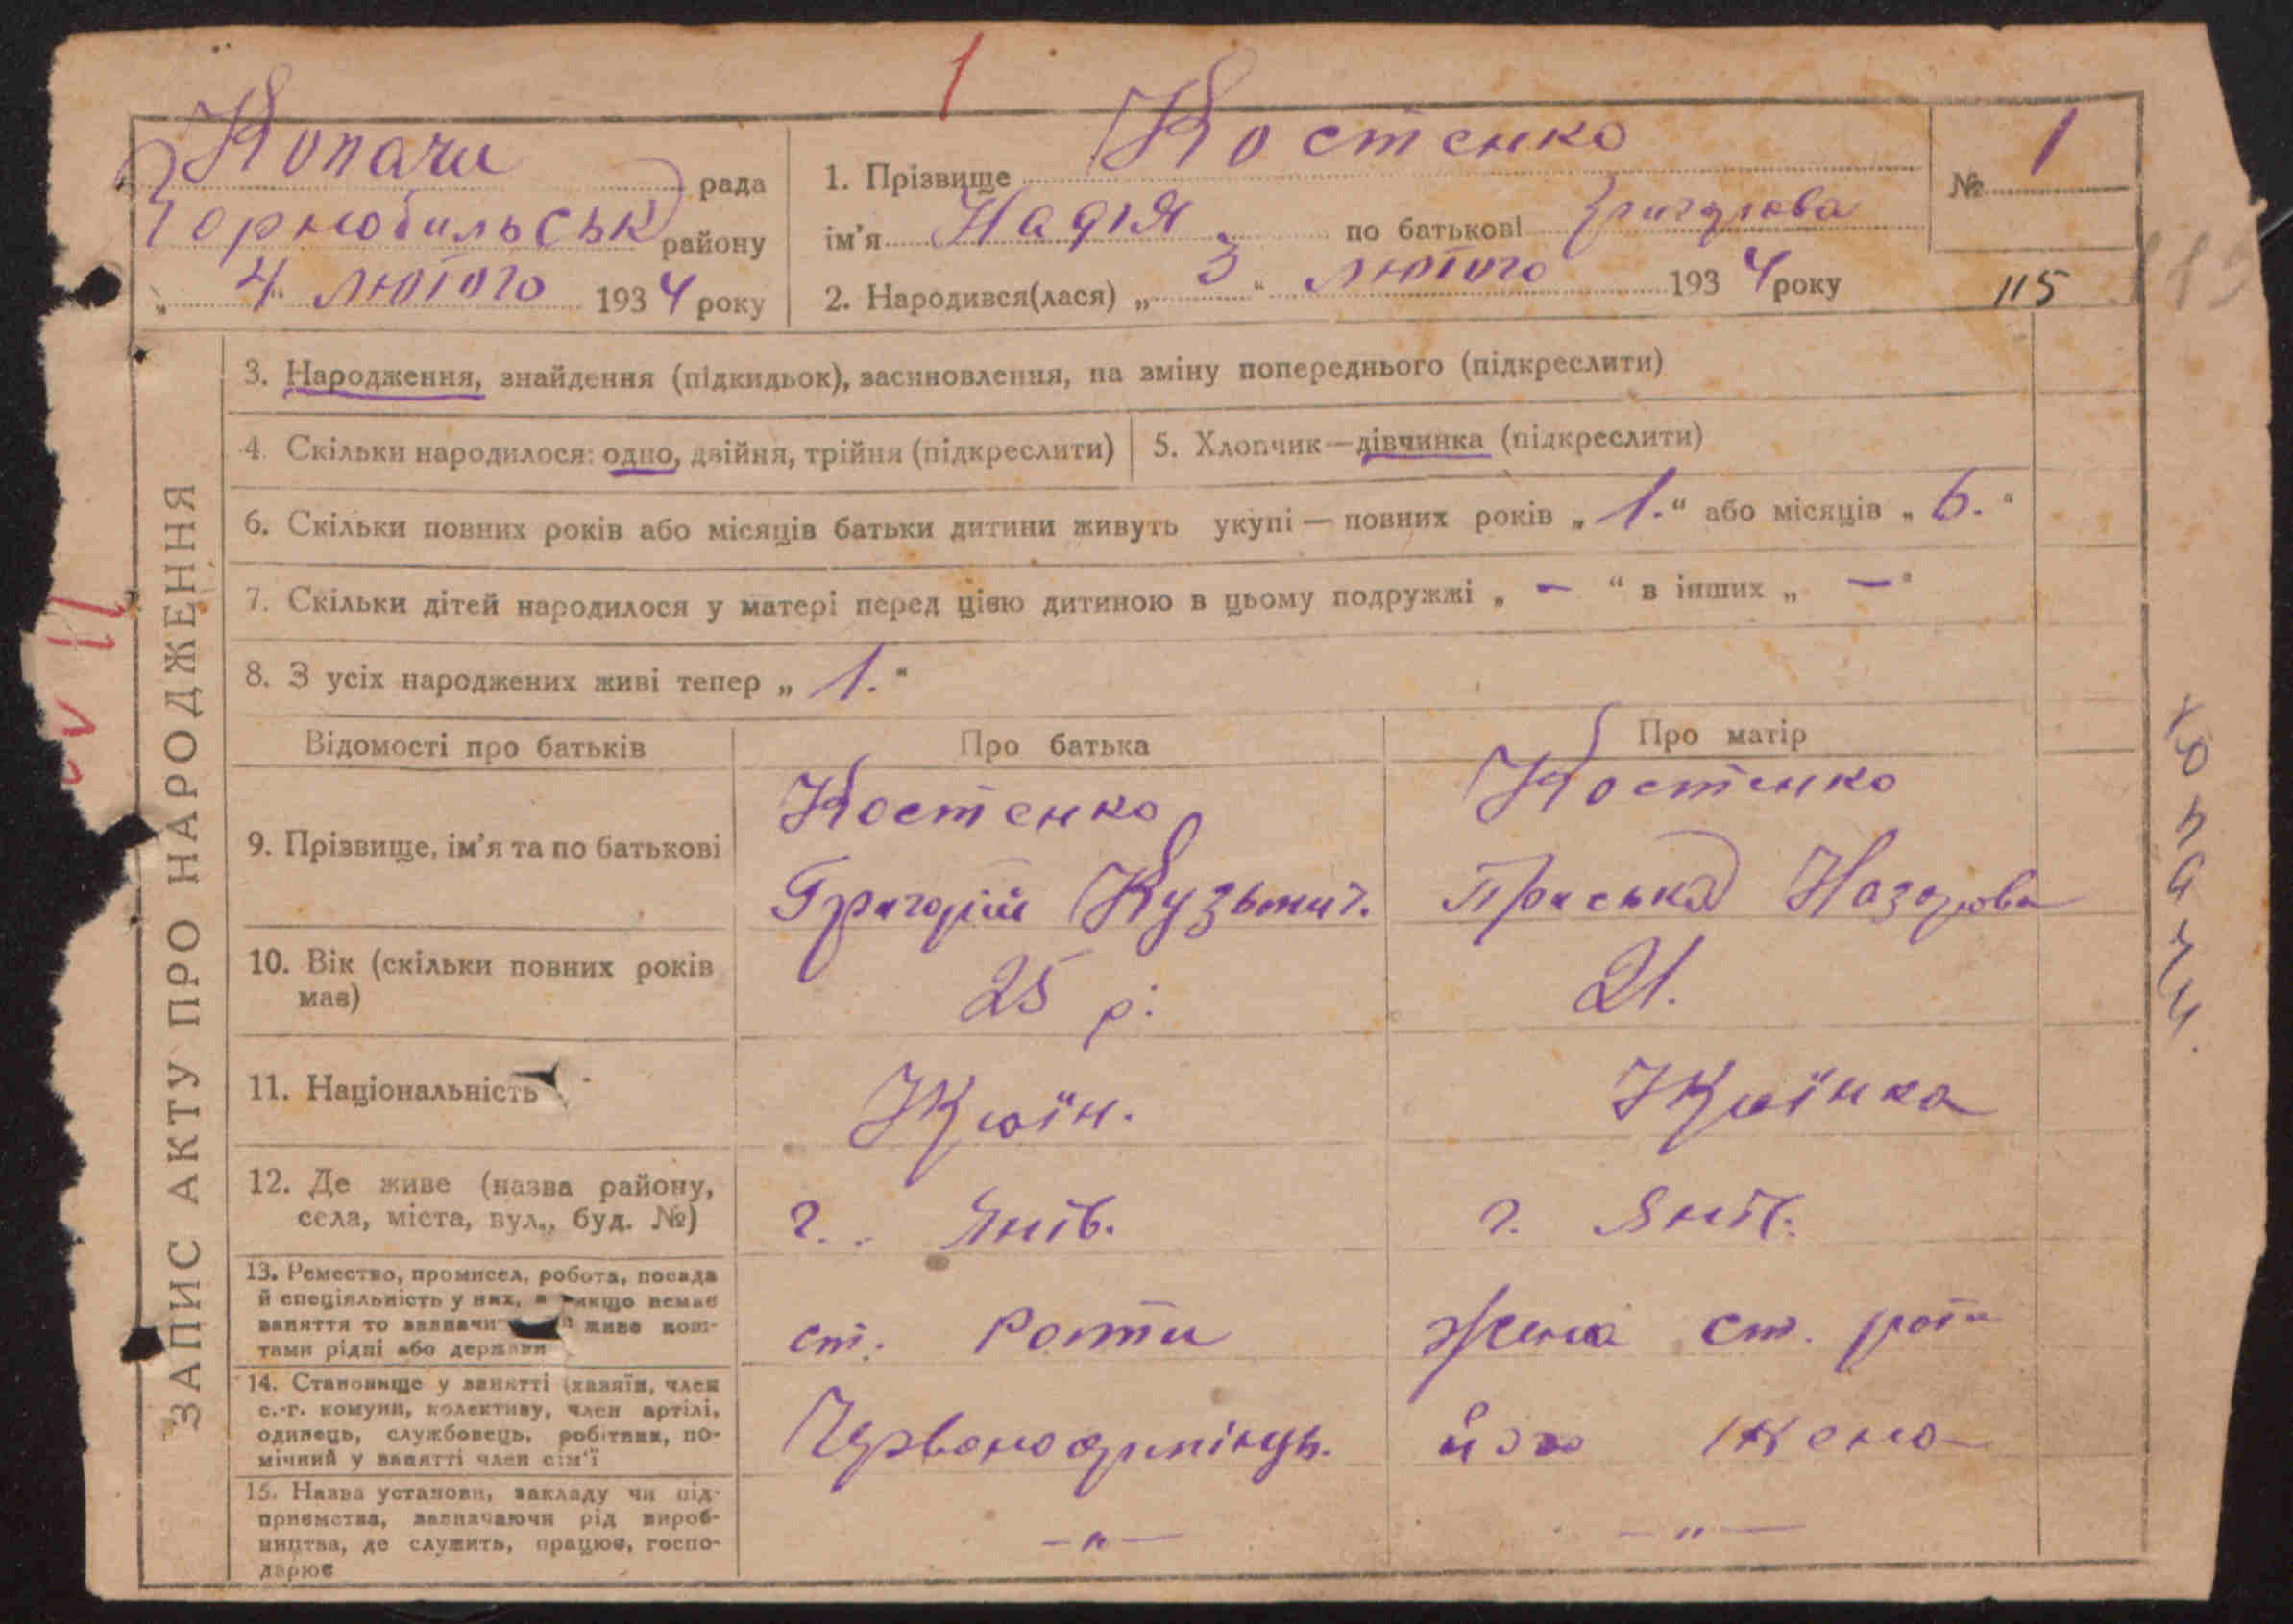 1
Копачи рада
Чорнобильськ району
„ 4 “ лютого 1934 року
1. Прізвище Костенко
ім'я Надія по батькові Григорова
2. Народився(лася) „ 3 “ лютого 1934 року
№ 1
115
ЗАПИС АКТУ ПРО НАРОДЖЕННЯ
3. Народження, знайдення (підкидьок), засиновлення, на зміну попереднього (підкреслити)
4. Скільки народилося: одно, двійня, трійня (підкреслити)
5. Хлопчик—дівчинка (підкреслити)
6. Скільки повних років або місяців батьки дитини живуть укупі — повних років „ 1. “ або місяців „ 6. “
7. Скільки дітей народилося у матері перед цією дитиною в цьому подружжі „ — “ в інших „ — “
8. З усіх народжених живі тепер „ 1. “
Відомості про батьків
Про батька
Про матір
9. Прізвище, ім'я та по батькові
Костенко
Григорій Кузьмич.
Костенко
Праська Назарова
10. Вік (скільки повних років
має)
25 р.
21.
11. Національність
Украін.
Українка
12. Де живе (назва району,
села, міста, вул., буд. №)
г. Янів.
г. Янів.
13. Ремество, промисел, робота, посада
й спеціяльність у них, а якщо немає
заняття то зазначи живе кош-
тами рідні або держави
ст. Роти
Жена ст. роти
14. Становище у занятті (хазяїн, член
с.-г. комуни, колективу, член артілі,
одинець, службовець, робітник, по-
мічний у занятті член сім'ї
Червоноармінець.
його жена
15. Назва установи, закладу чи під-
приємства, зазначаючи рід вироб-
ництва, де служить, працює, госпо-
дарює
—„—
—„—
Копачи.